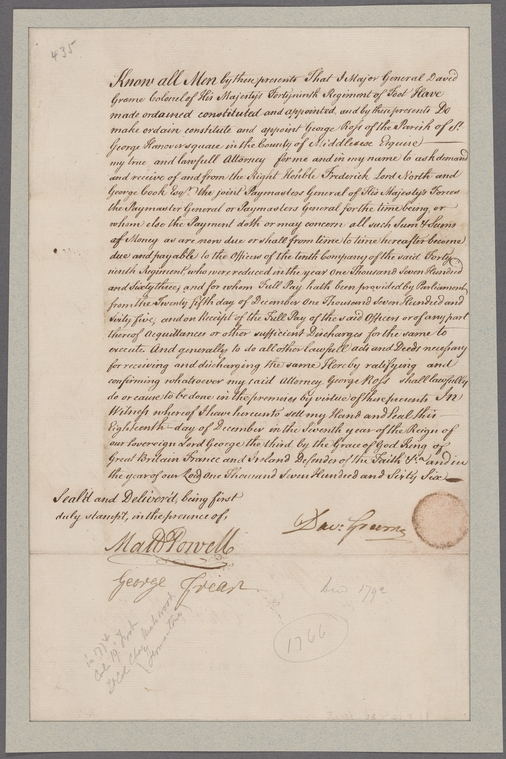 435
Know all Men by these presents That I Major General David
Grame Colonel of His Majestys Fortyninth Regiment of Foot Have
made ordained constituted and appointed, and by these presents Do
make ordain constitute and appoint George Ross of the Parish of St.
George Hanover square in the County of Middlesex Esquire
my true and lawfull Attorney for me and in my name to ask demand
and receive of and from the Right Honble. Frederick Lord North and
George Cook Esqr. the joint Paymasters General of His Majestys Forces
the Paymaster General or Paymasters General for the time being, or
whom else the Payment doth or may concern all such Sum & Sums
of Money as are now due or shall from time to time hereafter become
due and payable to the Officers of the tenth Company of the said Forty
ninth Regiment who were reduced in the year One Thousand Seven Hundred
and Sixty three, and for whom Full Pay hath been provided by Parliament
from the Twenty fifth day of December One Thousand Seven Hundred and
Sixty five, and on Receipt of the Full Pay of the said Officers or of any part
thereof Acquittances or other sufficient Discharges for the same to
execute And generally to do all other lawfull acts and Deeds necessary
for receiving and discharging the same Hereby ratifying and
confirming whatsoever my said Attorney George Ross shall lawfully
do or cause to be done in the premises by virtue of these presents In
Witness whereof I have hereunto sett my Hand and Seal this
Eighteenth day of December in the Seventh year of the Reign of
our Sovereign Lord George the third by the Grace of God King of
Great Britain France and Ireland Defender of the Faith &ca. and in
the year of our Lord One Thousand Seven Hundred and Sixty Six
Seal'd and Deliver'd, being first
duly stampt, in the presence of,
Dav: Græme
Matt Powell
George Friar
1792
1766
in 1774
Col. 19 Foot